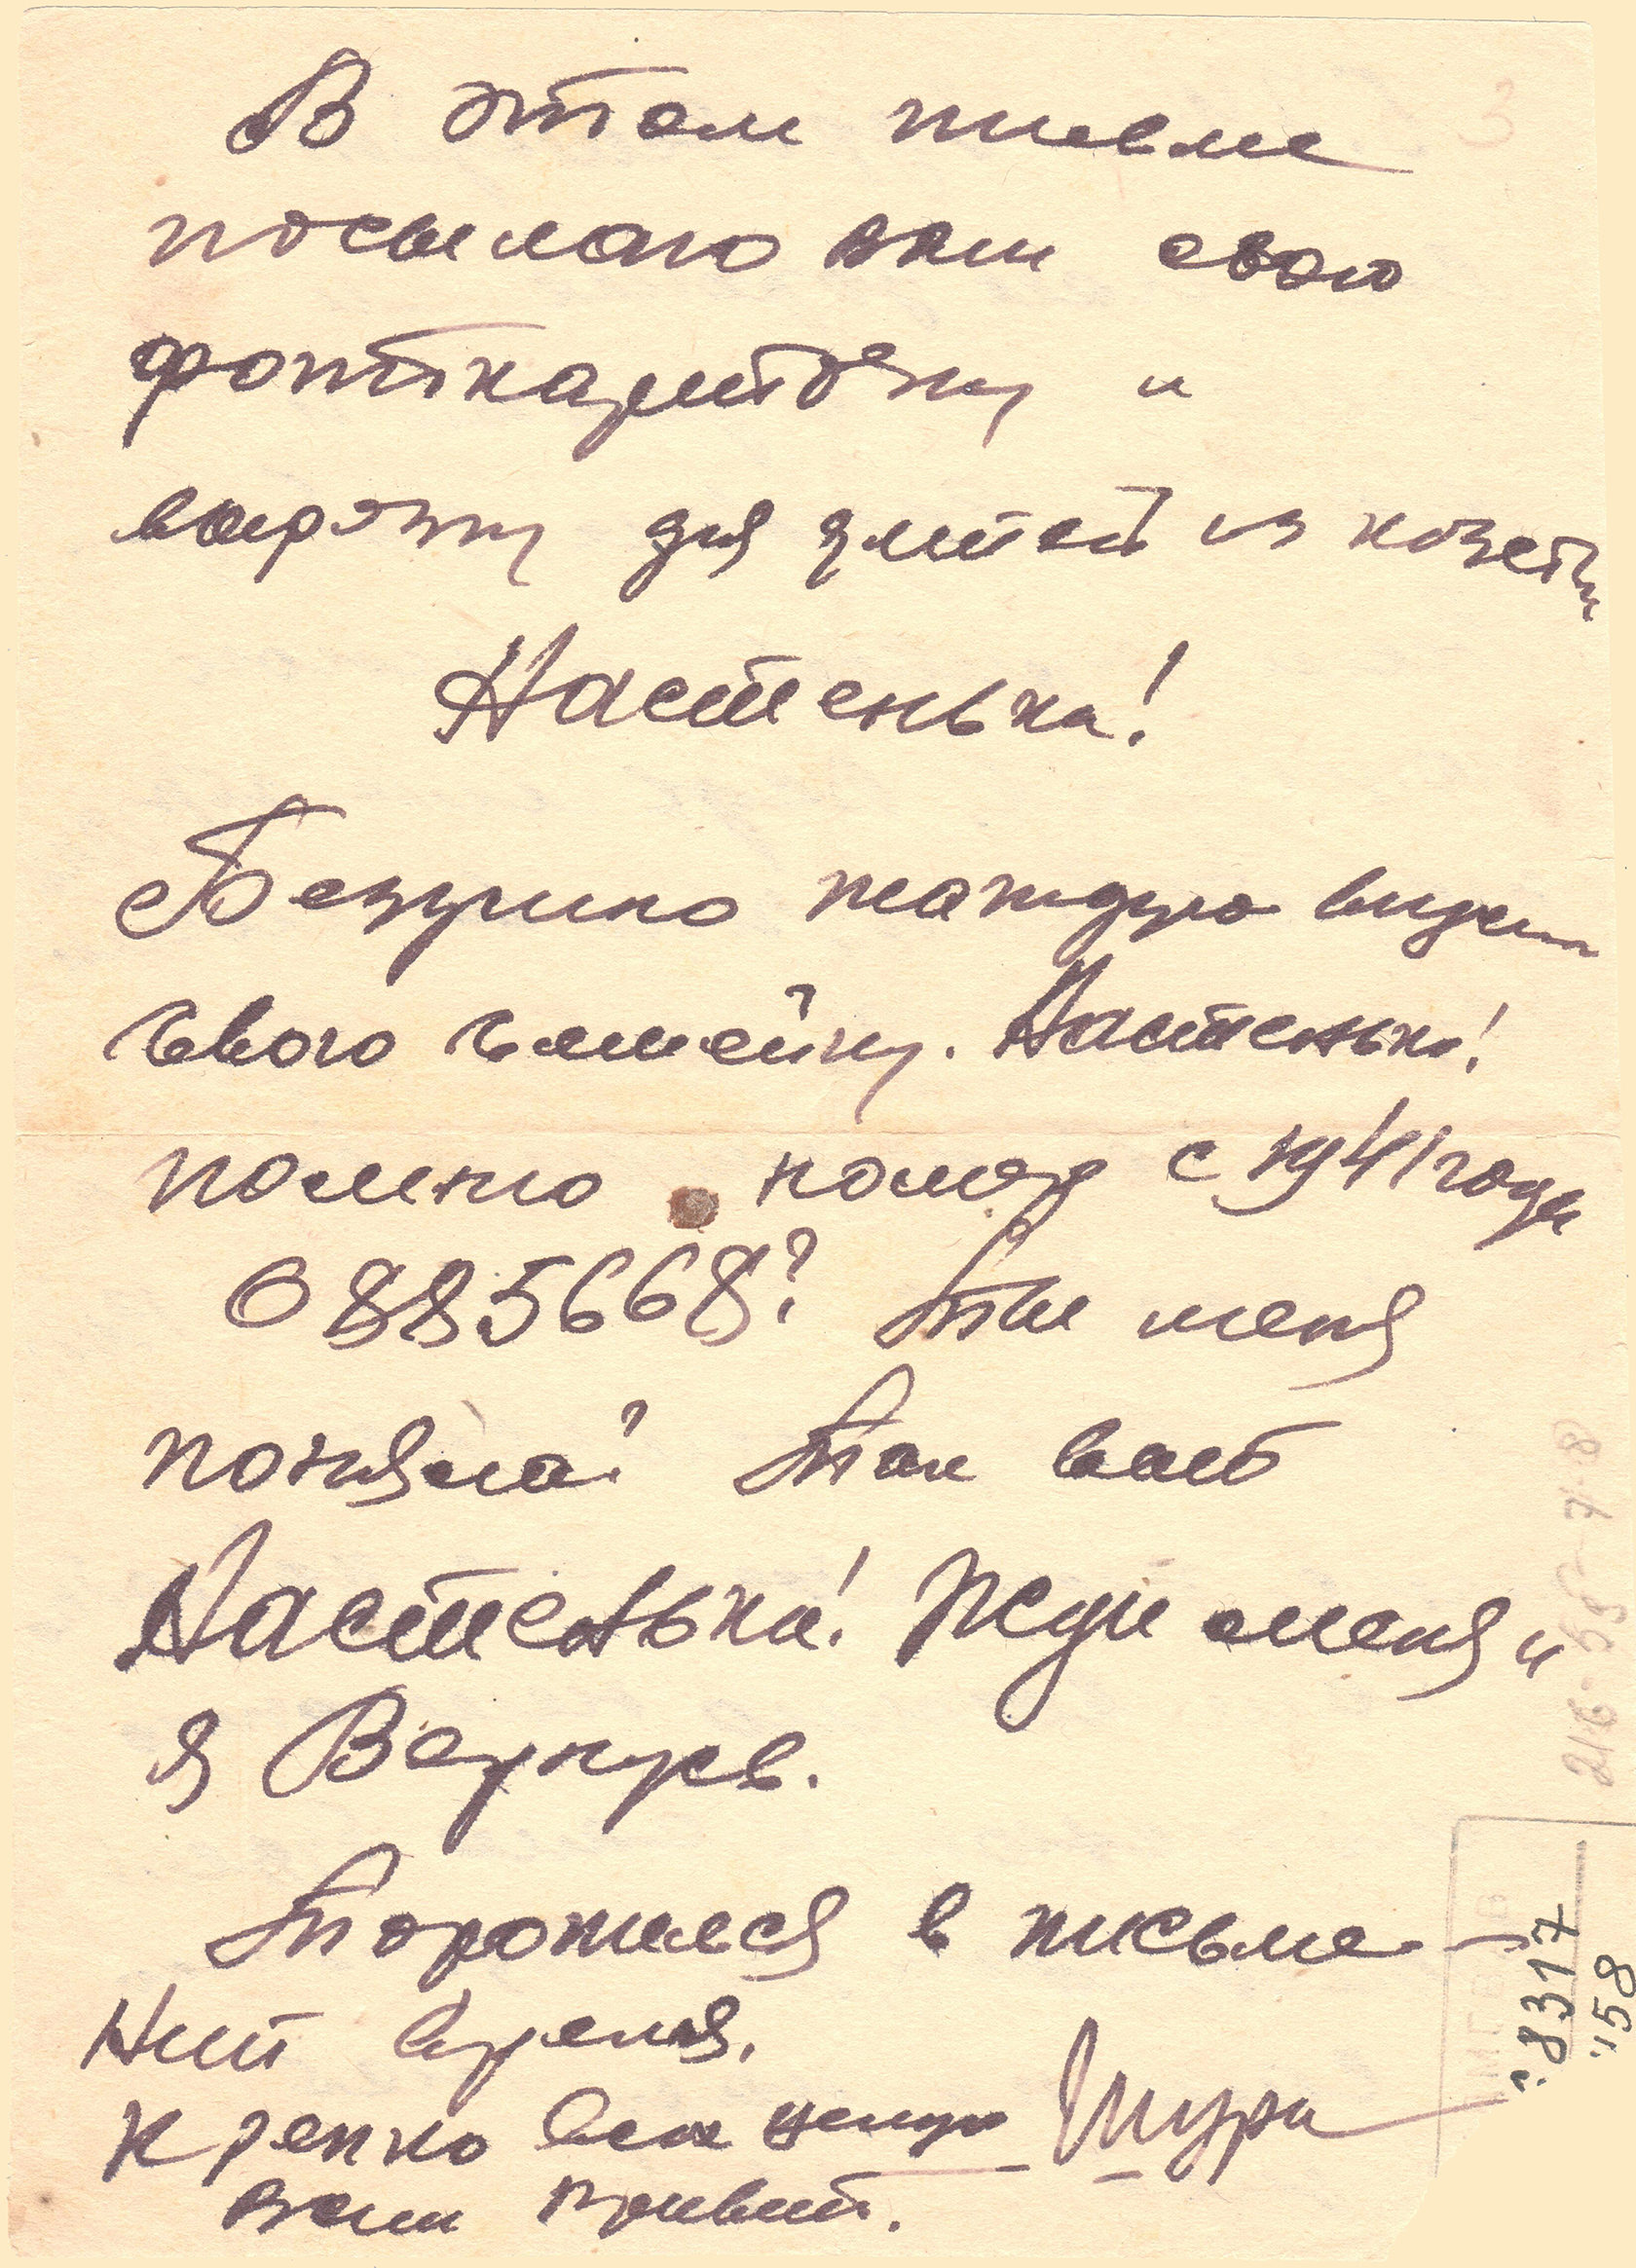 В этом письме
посылаю вам свою
фотокарточку и
вырезку для детей из газеты
Настенька!
Безумно жажду видеть
свою семейку. Настенька!
помню номер с 1941 года
0885668? Ты меня
поняла? Так вот
Настенька! Жди меня и
я Вернусь.
Торопился в письме
Нит время.
Крепко всех целую Шура
вам привет.
3
216-58-7-8
8317
58